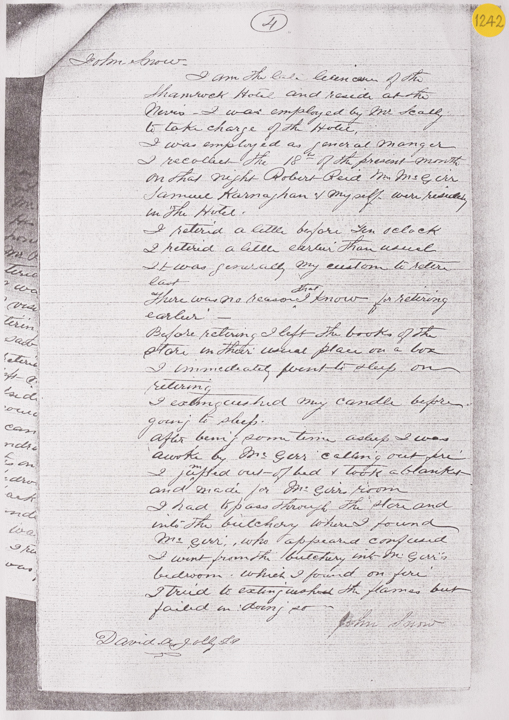 4
1242
John Snow
I am the late licencee of the
Shamrock Hotel and reside at the
Nevis - I was employed by Mr Scally
to take charge of the Hotel,
I was employed as general manger
I recollect the 18th of the present month
On that night Robert Reid Mr McGirr
Samuel Karnaghan & myself were residing
in the Hotel.
I retired a little before Ten oclock
I retired a little earlier than usual
It was generally my custom to retire
last
There was no reason that I know for retiring
earlier -
Before retiring I left the books of the
Store in their usual place on a box
I immediately went to sleep on
retiring
I extinguished my candle before
going to sleep.
After being some time asleep I was
awoke by McGirr calling out fire
I jumped out of bed & took a blanket
and made for McGirrs room
I had to pass through the store and
into the butchery where I found
McGirr, who appeared confused
I went from the butchery into McGirr's
bedroom. which I found on fire
I tried to extinguished the flames but
failed in doing so -
John Snow
David A Jolly